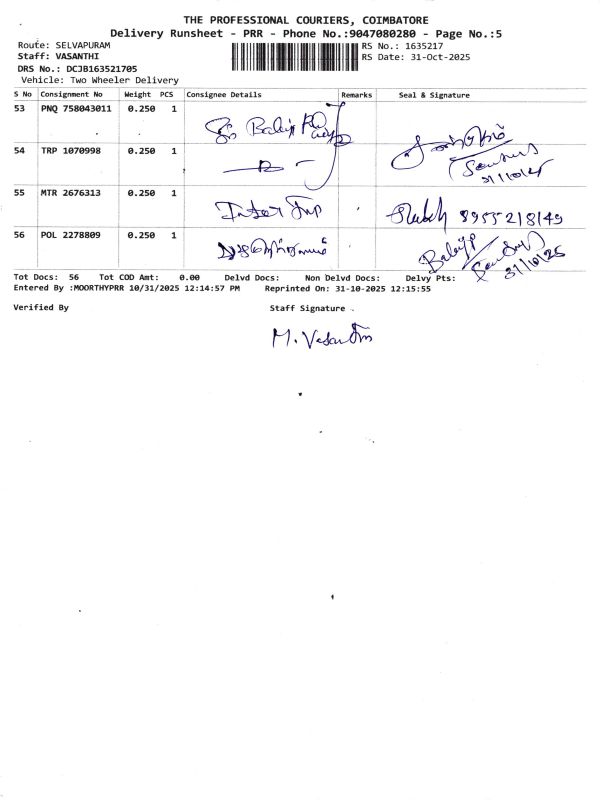 THE PROFESSIONAL COURIERS, COIMBATORE
Delivery Runsheet - PRR - Phone No.:9047080280 - Page No.:5
Route: SELVAPURAM RS No.: 1635217
Staff: VASANTHI RS Date: 31-Oct-2025
DRS No.: DCJB163521705
Vehicle: Two Wheeler Delivery
S No Consignment No Weight PCS Consignee Details Remarks Seal & Signature
53 PNQ 758043011 0.250 1
54 TRP 1070998 0.250 1
31/10/25
55 MTR 2676313 0.250 1
56 POL 2278809 0.250 1 Balaji
31/10/25
Tot Docs: 56 Tot COD Amt: 0.00 Delvd Docs: Non Delvd Docs: Delvy Pts:
Entered By :MOORTHYPRR 10/31/2025 12:14:57 PM Reprinted On: 31-10-2025 12:15:55
Verified By Staff Signature
M. Vasanthi